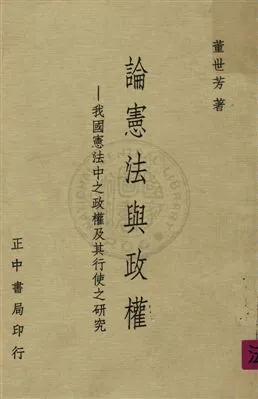 董世芳著
論憲法與政權
—我國憲法中之政權及其行使之研究
正中書局印行